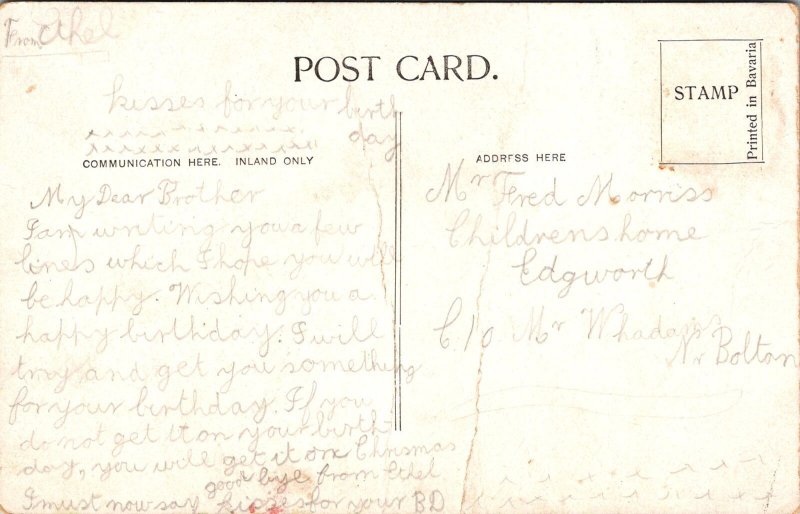 From Ethel
POST CARD.
STAMP
Printed in Bavaria
kisses for your birth
day
x x x x x x x x x x x
x x x x x x x x x x x x
COMMUNICATION HERE. INLAND ONLY
ADDRESS HERE
My Dear Brother
I am writing you a few
lines which I hope you will
be happy. Wishing you a
happy birthday. I will
try and get you something
for your birthday. If you
do not get it on your birth
day, you will get it on Chrismas
good bye from Ethel
I must now say kisses for your BD
Mr Fred Morriss
Childrens home
Edgworth
C/o Mr
Nr Bolton